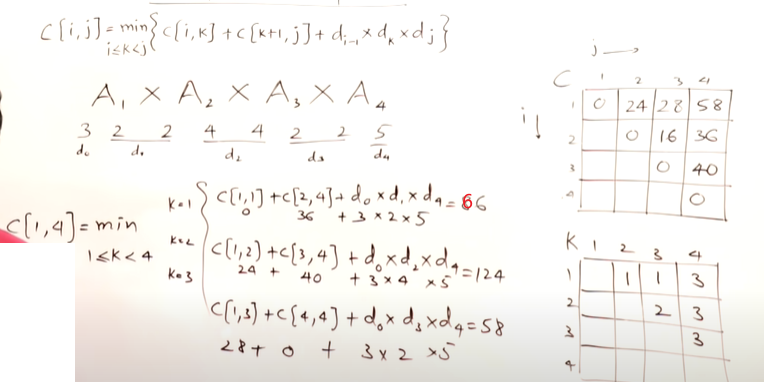 C[i,j] = min { C[i,k] + C[k+1,j] + di-1 × dk × dj }
i≤k<j
A1 × A2 × A3 × A4
3 2 2 4 4 2 2 5
d0 d1 d2 d3 d4
C[1,4] = min
1≤k<4
k=1 { C[1,1] + C[2,4] + d0 × d1 × d4 = 66
0 36 + 3 × 2 × 5
k=2 C[1,2] + C[3,4] + d0 × d2 × d4 = 124
24 + 40 + 3 × 4 × 5
k=3 C[1,3] + C[4,4] + d0 × d3 × d4 = 58
28 + 0 + 3 × 2 × 5
j →
C 1 2 3 4
i ↓
1 0 24 28 58
2 0 16 36
3 0 40
4 0
K 1 2 3 4
1 1 1 3
2 2 3
3 3
4